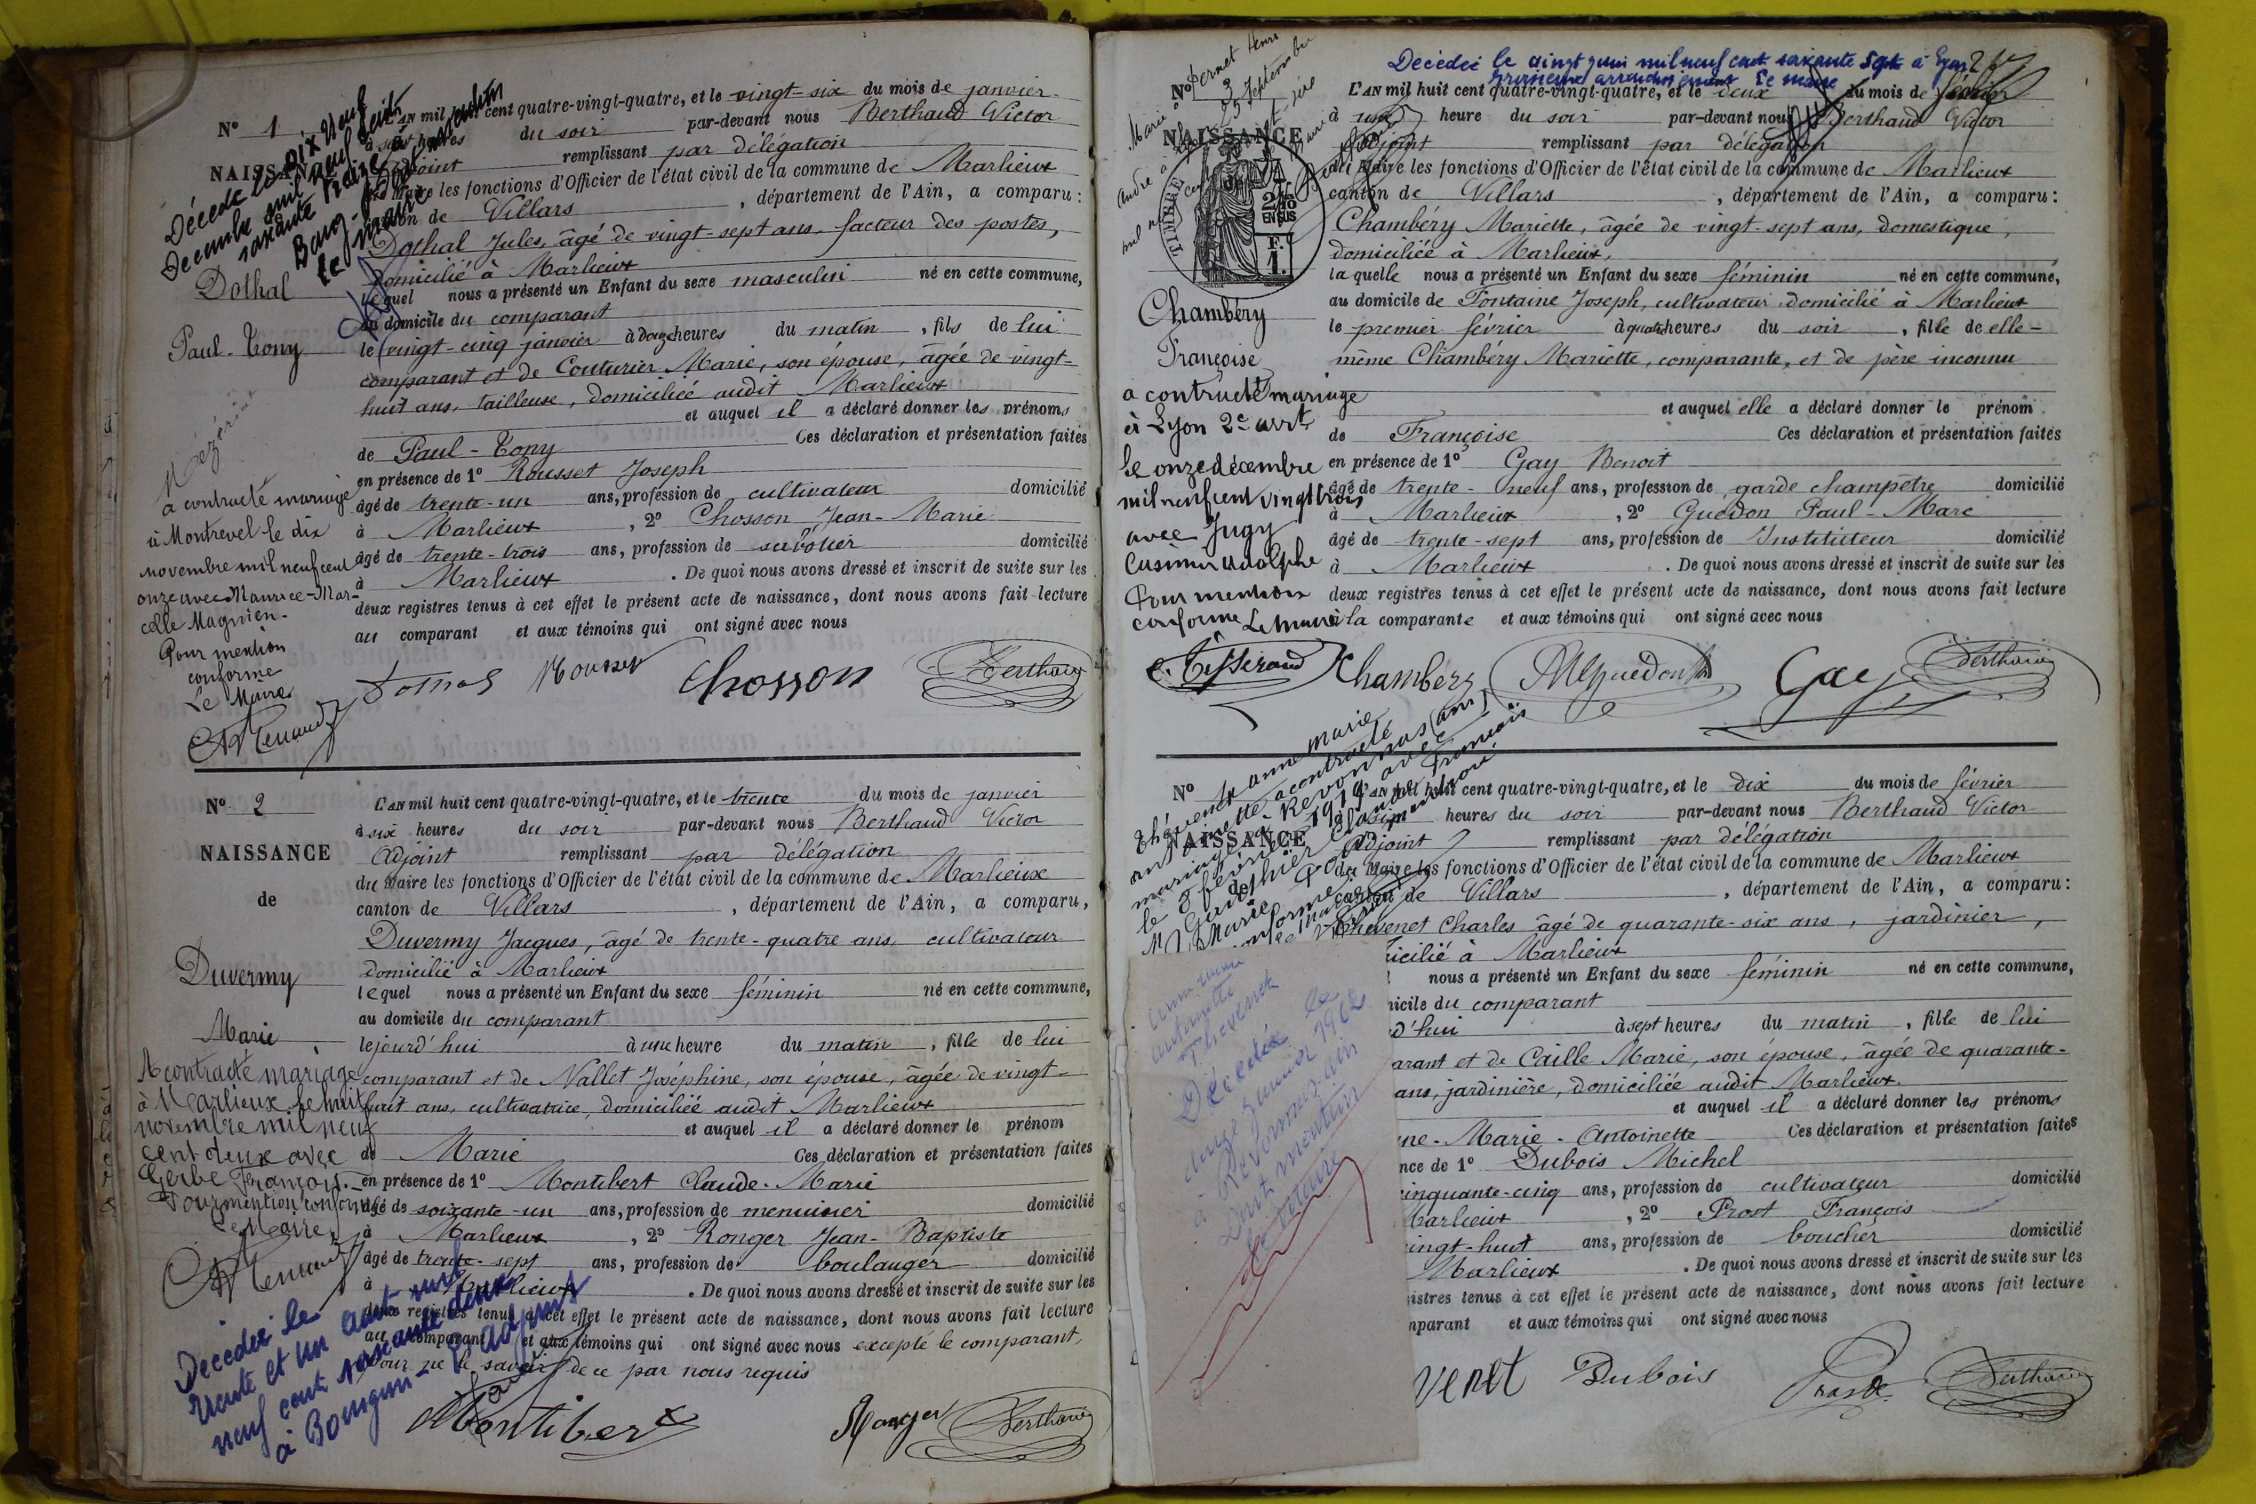 N° 1
NAISSANCE
Décédé le dix neuf
Décembre mil neuf cent
soixante treize à
Bourg
le maire
Dothal
Paul-Tony
a contracté mariage
à Montrevel le dix
novembre mil neuf cent
onze avec Maurice-Mar-
celle Magnien.
Pour mention
conforme
Le Maire
L'AN mil huit cent quatre-vingt-quatre, et le vingt-six du mois de janvier
à heures du soir par-devant nous Berthaud Victor
Adjoint remplissant par délégation
du Maire les fonctions d'Officier de l'état civil de la commune de Marlieux
canton de Villars, département de l'Ain, a comparu:
Dothal Jules, âgé de vingt-sept ans, facteur des postes,
domicilié à Marlieux
lequel nous a présenté un Enfant du sexe masculin né en cette commune,
au domicile du comparant
le vingt-cinq janvier à douze heures du matin, fils de lui
comparant et de Couturier Marie, son épouse, âgée de vingt-
huit ans, tailleuse, domiciliée audit Marlieux
et auquel il a déclaré donner les prénoms
de Paul-Tony Ces déclaration et présentation faites
en présence de 1° Rousset Joseph
âgé de trente-un ans, profession de cultivateur domicilié
à Marlieux, 2° Chosson Jean-Marie
âgé de trente-trois ans, profession de sabotier domicilié
à Marlieux. De quoi nous avons dressé et inscrit de suite sur les
deux registres tenus à cet effet le présent acte de naissance, dont nous avons fait lecture
au comparant et aux témoins qui ont signé avec nous
Dothal Rousset Chosson Berthaud
N° 2
NAISSANCE
de
Duvermy
Marie
A contracté mariage
à Marlieux le huit
novembre mil neuf
cent deux avec
Gerbe François.
Pour mention conforme
Le Maire
Décédée le
trente et un août mil
neuf cent soixante deux
à Bourgoin
L'AN mil huit cent quatre-vingt-quatre, et le trente du mois de janvier
à six heures du soir par-devant nous Berthaud Victor
Adjoint remplissant par délégation
du Maire les fonctions d'Officier de l'état civil de la commune de Marlieux
canton de Villars, département de l'Ain, a comparu,
Duvermy Jacques, âgé de trente-quatre ans, cultivateur
domicilié à Marlieux
lequel nous a présenté un Enfant du sexe féminin né en cette commune,
au domicile du comparant
le jourd'hui à une heure du matin, fille de lui
comparant et de Nallet Joséphine, son épouse, âgée de vingt-
huit ans, cultivatrice, domiciliée audit Marlieux
et auquel il a déclaré donner le prénom
de Marie Ces déclaration et présentation faites
en présence de 1° Montibert Claude-Marie
âgé de soixante-un ans, profession de menuisier domicilié
à Marlieux, 2° Ronger Jean-Baptiste
âgé de trente-sept ans, profession de boulanger domicilié
à Marlieux. De quoi nous avons dressé et inscrit de suite sur les
deux registres tenus à cet effet le présent acte de naissance, dont nous avons fait lecture
au comparant et aux témoins qui ont signé avec nous excepté le comparant,
pour ne le savoir de ce par nous requis
Montibert Ronger Berthaud
Décédée le vingt juin mil neuf cent soixante sept à Lyon 2
arrondissement Le maire
N° 3
NAISSANCE
TIMBRE
2/10
EN SUS
F.
1.
Chambéry
Françoise
a contracté mariage
à Lyon 2e arrt
le onze décembre
mil neuf cent vingt trois
avec Jugy
Casimir Adolphe
Pour mention
conforme Le maire
L'AN mil huit cent quatre-vingt-quatre, et le deux du mois de février
à heure du soir par-devant nous Berthaud Victor
Adjoint remplissant par délégation
du Maire les fonctions d'Officier de l'état civil de la commune de Marlieux
canton de Villars, département de l'Ain, a comparu:
Chambéry Mariette, âgée de vingt-sept ans, domestique,
domiciliée à Marlieux,
la quelle nous a présenté un Enfant du sexe féminin né en cette commune,
au domicile de Fontaine Joseph, cultivateur domicilié à Marlieux
le premier février à quatre heures du soir, fille de elle-
même Chambéry Mariette, comparante, et de père inconnu
et auquel elle a déclaré donner le prénom
de Françoise Ces déclaration et présentation faites
en présence de 1° Gay Benoit
âgé de trente-neuf ans, profession de garde champêtre domicilié
à Marlieux, 2° Guédon Paul-Marc
âgé de trente-sept ans, profession de Instituteur domicilié
à Marlieux. De quoi nous avons dressé et inscrit de suite sur les
deux registres tenus à cet effet le présent acte de naissance, dont nous avons fait lecture
à la comparante et aux témoins qui ont signé avec nous
Chambéry Guedon Gay Berthaud
N°
NAISSANCE
de
Thévenet anne marie
antoinette a contracté
mariage à Revonnas (ain)
le 8 février 1919 avec
L'AN mil huit cent quatre-vingt-quatre, et le dix du mois de février
heures du soir par-devant nous Berthaud Victor
Adjoint remplissant par délégation
du Maire les fonctions d'Officier de l'état civil de la commune de Marlieux
canton de Villars, département de l'Ain, a comparu:
Thévenet Charles âgé de quarante-six ans, jardinier,
icilié à Marlieux
nous a présenté un Enfant du sexe féminin né en cette commune,
icile du comparant
d'hui à sept heures du matin, fille de lui
arant et de Caille Marie, son épouse, âgée de quarante-
ans, jardinière, domiciliée audit Marlieux.
et auquel il a déclaré donner les prénoms
ne-Marie-Antoinette Ces déclaration et présentation faites
nce de 1° Dubois Michel
inquante-cinq ans, profession de cultivateur domicilié
arlieux, 2° Prost François
ingt-huit ans, profession de boucher domicilié
Marlieux. De quoi nous avons dressé et inscrit de suite sur les
istres tenus à cet effet le présent acte de naissance, dont nous avons fait lecture
mparant et aux témoins qui ont signé avec nous
venet Dubois Prost Berthaud
antoinette
Thévenet
Décédée le
janvier 1962
à Revonnas-ain
Dont mention
Le Maire